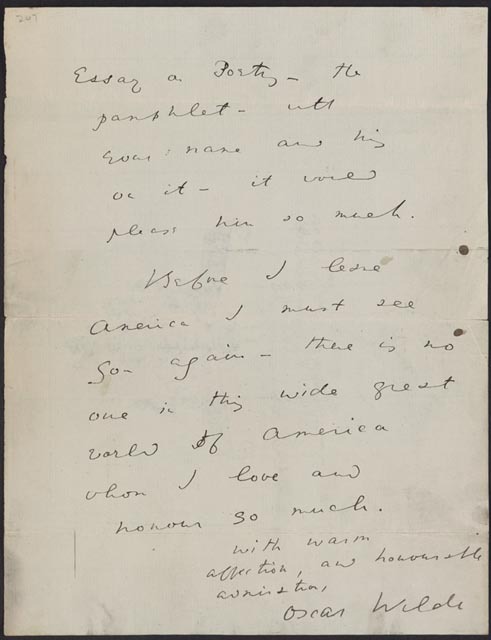 207
Essay on Poetry – the
pamphlet – with
your name and his
on it – it would
please him so much.
Before I leave
America I must see
you again – there is no
one in this wide great
world of America
whom I love and
honour so much.
with warm
affection, and honourable
admiration,
Oscar Wilde